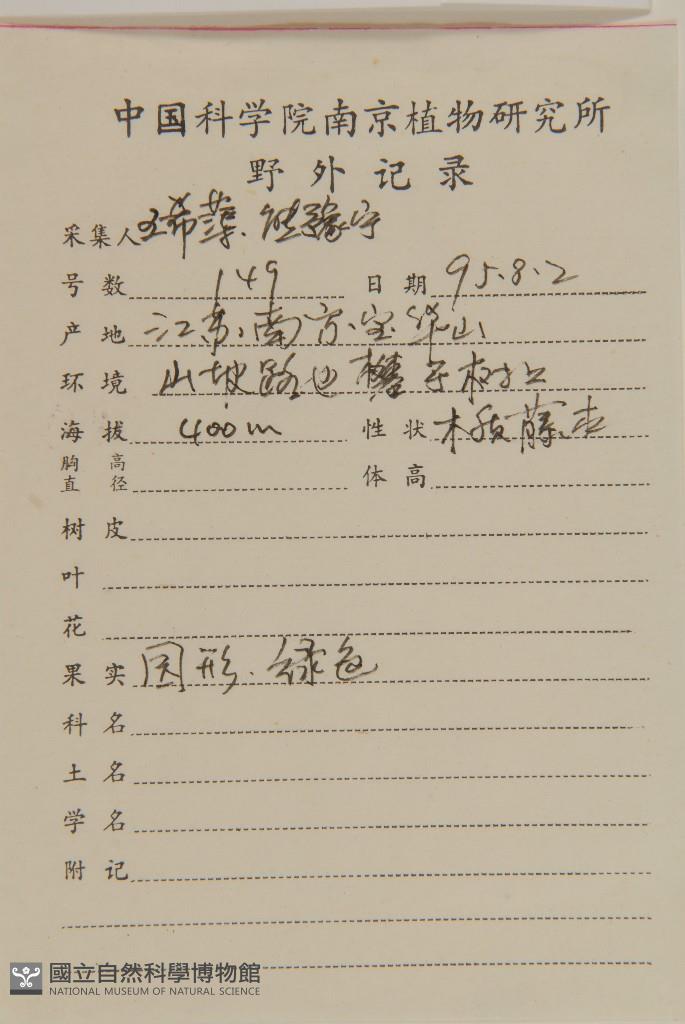 中国科学院南京植物研究所
野外记录
采集人 王希蕖、熊豫宁
号数 149 日期 95.8.2
产地 江苏、南京、宝华山
环境 山坡路边攀于树上
海拔 400m 性状 木质藤本
胸高直径 体高
树皮
叶
花
果实 园形、绿色
科名
土名
学名
附记
國立自然科學博物館
NATIONAL MUSEUM OF NATURAL SCIENCE